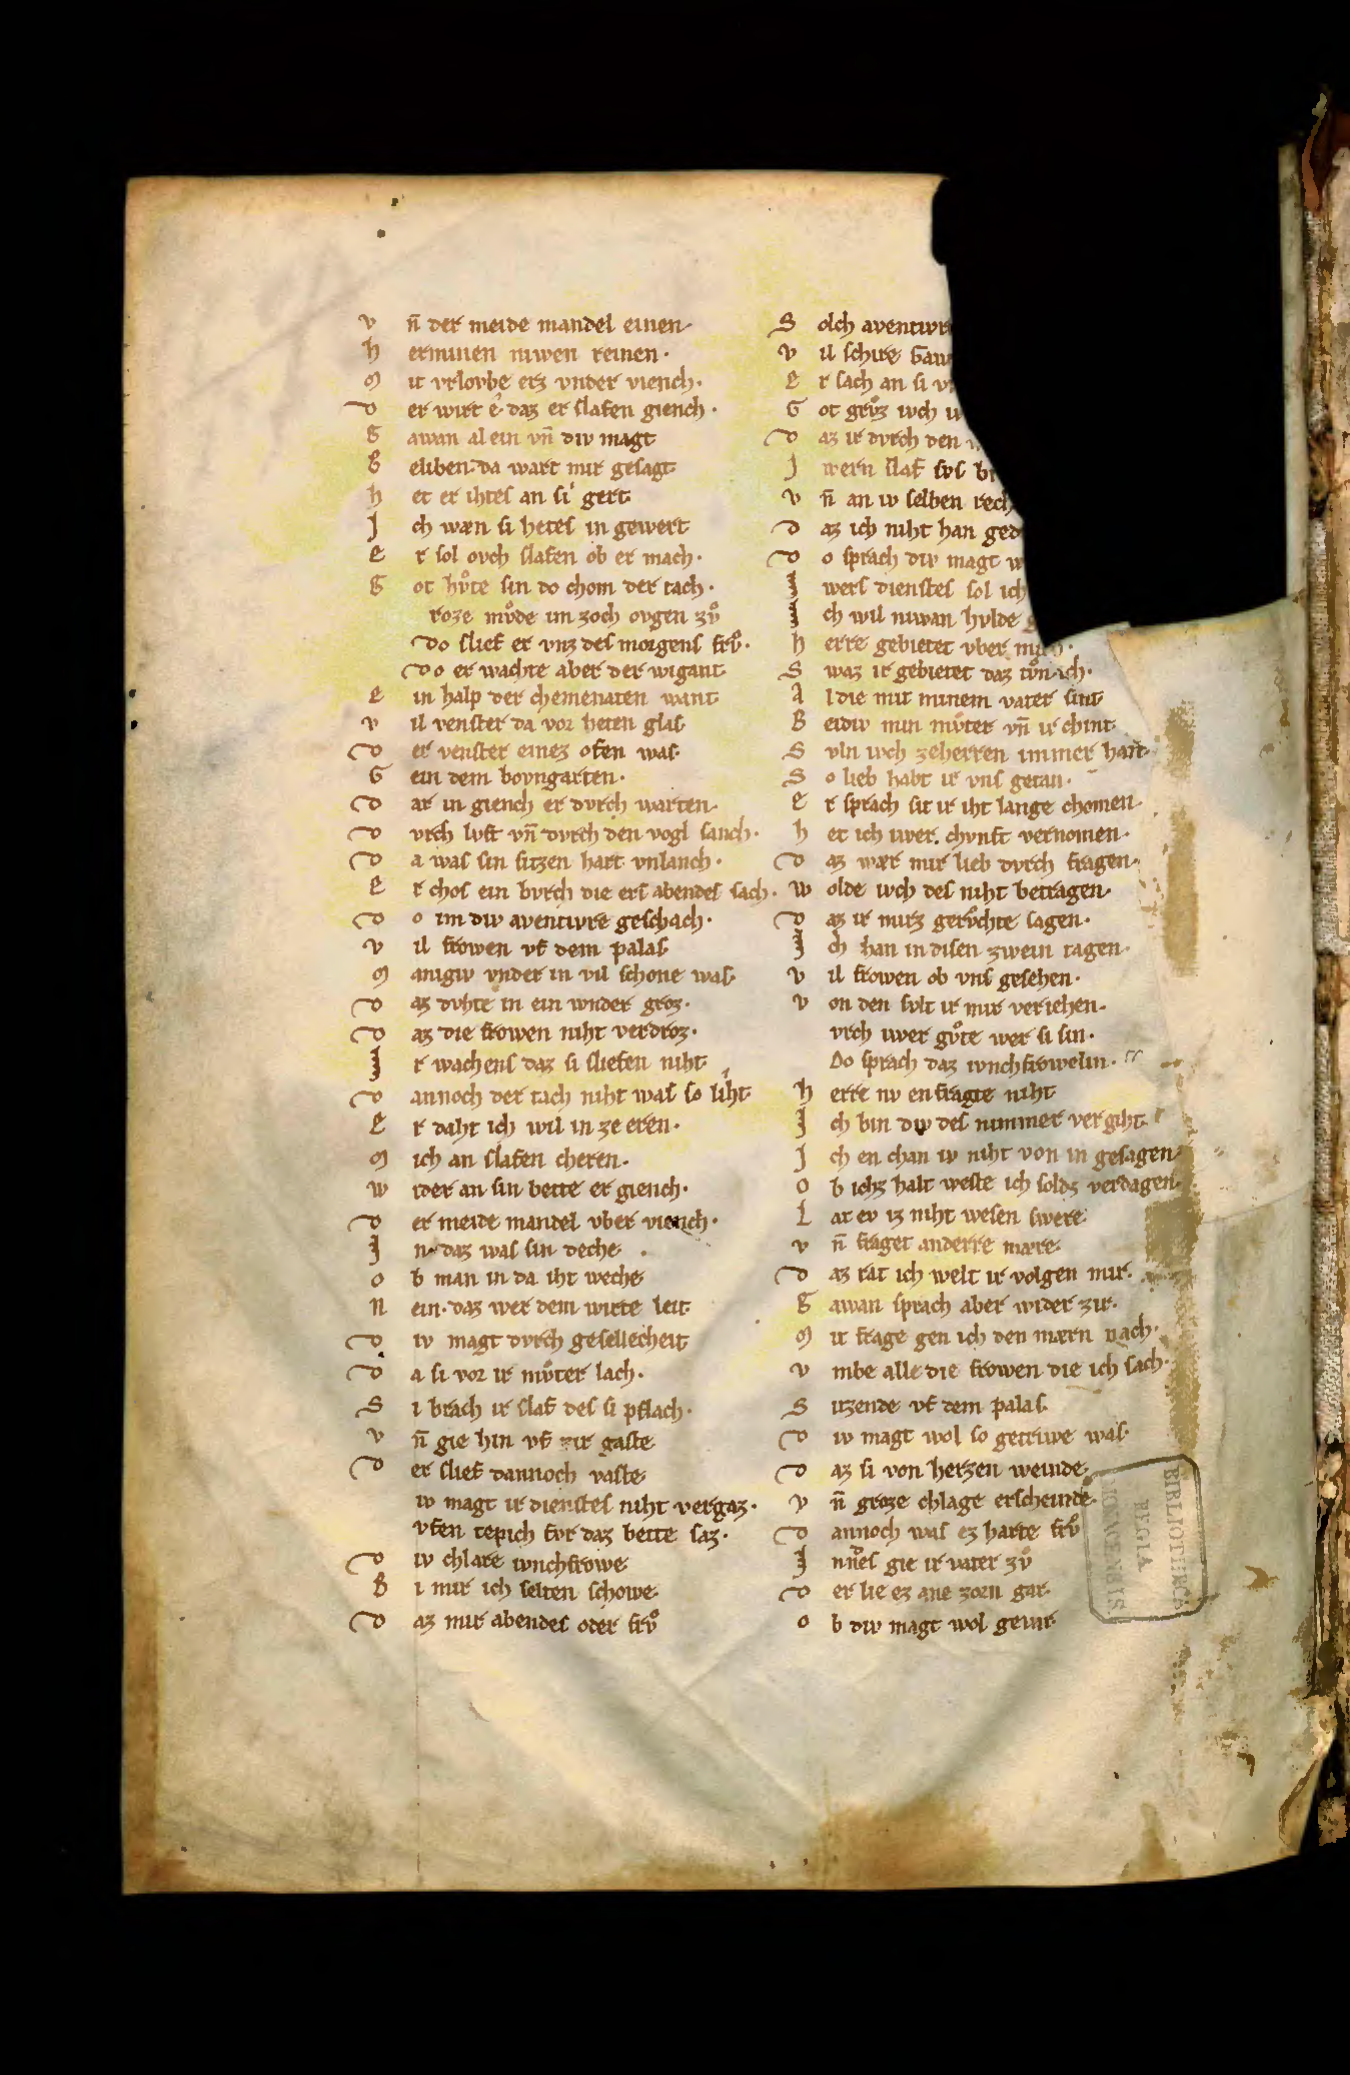 V n̄ der meide mandel einen·
H erminen niwen reinen·
M it vrlovbe erz vnder viench·
D er wirt e· daz er slafen giench·
G awan al ein vn̄ div magt
B eliben· da wart mir gesagt
H et er ihtes an si gert
J ch wæn si hetes in gewert
E r sol ovch slafen ob er mach·
G ot hvͦte sin do chom der tach·
roze mvͦde im zoch ovgen zvͦ
Do slief er vnz des morgens frvͦ·
Do er wachte aber der wigant
E in halp der chemenaten want
V il venster da vor heten glas
D er venster einez offen was·
G ein dem bovngarten·
D ar in giench er dvrch warten·
D vrch lvft vn̄ dvrch den vogl sanch·
D a was sin sitzen hart vnlanch·
E r chos ein bvrch die ers abendes sach·
D o im div aventivre geschach·
V il frowen vf dem palas
M anigiv vnder in vil schone was·
D az dvhte in ein wnder groz·
D az die frowen niht verdroz·
J r wachens daz si sliefen niht
D annoch der tach niht was so liht
E r daht ich wil in ze eren·
M ich an slafen cheren·
W ider an sin bette er giench·
D er meide mandel vber viench·
J n· daz was sin deche·
O b man in da iht weche
N ein· daz wer dem wirte leit·
D iv magt dvrch gesellecheit
D a si vor ir mvͦter lach·
S i brach ir slaf des si pflach·
V n̄ gie hin vf zir gaste
D er slief dannoch vaste
iv magt ir dienstes niht vergaz·
vfen tepich fvr daz bette saz·
D iv chlare ivnchfrowe
B i mir ich selten schowe
D az mir abendes oder frvͦ
S olch aventivr
V il schire Gaw
E r sach an si v
G ot grvͦz ivch
D az ir dvrch den
J wern slaf svs
V n̄ an iv selben rech
D az ich niht han ged
D o sprach div magt
J wers dienstes sol ich
J ch wil niwan hvlde
H erre gebietet vber mich·
S waz ir gebietet daz tvͦn ich·
A l die mit minem vater sint
B eidiv min mvͦter vn̄ ir chint
S vln ivch zeherren immer han·
S o lieb habt ir vns getan·
E r sprach sit ir iht lange chomen·
H et ich iwer chvnft vernomen·
D az wær mir lieb dvrch fragen·
W olde ivch des niht betragen·
D az ir mirz gervͦchte sagen·
J ch han in disen zwein tagen·
V il frowen ob vns gesehen·
V on den svlt ir mir veriehen·
vrch iwer gvͦte wer si sin·
Do sprach daz ivnchfrowelin·
H erre nv en fragte niht
J ch bin div des nimmer vergiht
J ch en chan iv niht von in gesagen·
O b ichz halt weste ich soldz verdagen·
L at ev iz niht wesen swere
V n̄ fraget anderre mære·
D az rat ich welt ir volgen mir·
G awan sprach aber wider zir·
M it frage gen ich den mærn nach·
V mbe alle die frowen die ich sach·
S itzende vf dem palas·
D iv magt wol so getriwe was·
D az si von herzen weinde·
V n̄ groze chlage erscheinde·
D annoch was ez harte frvͦ
J nnes gie ir vater zvͦ
D er lie ez ane zorn gar·
O b div magt wol gevar
BIBLIOTHECA
REGIA
MONACENSIS.